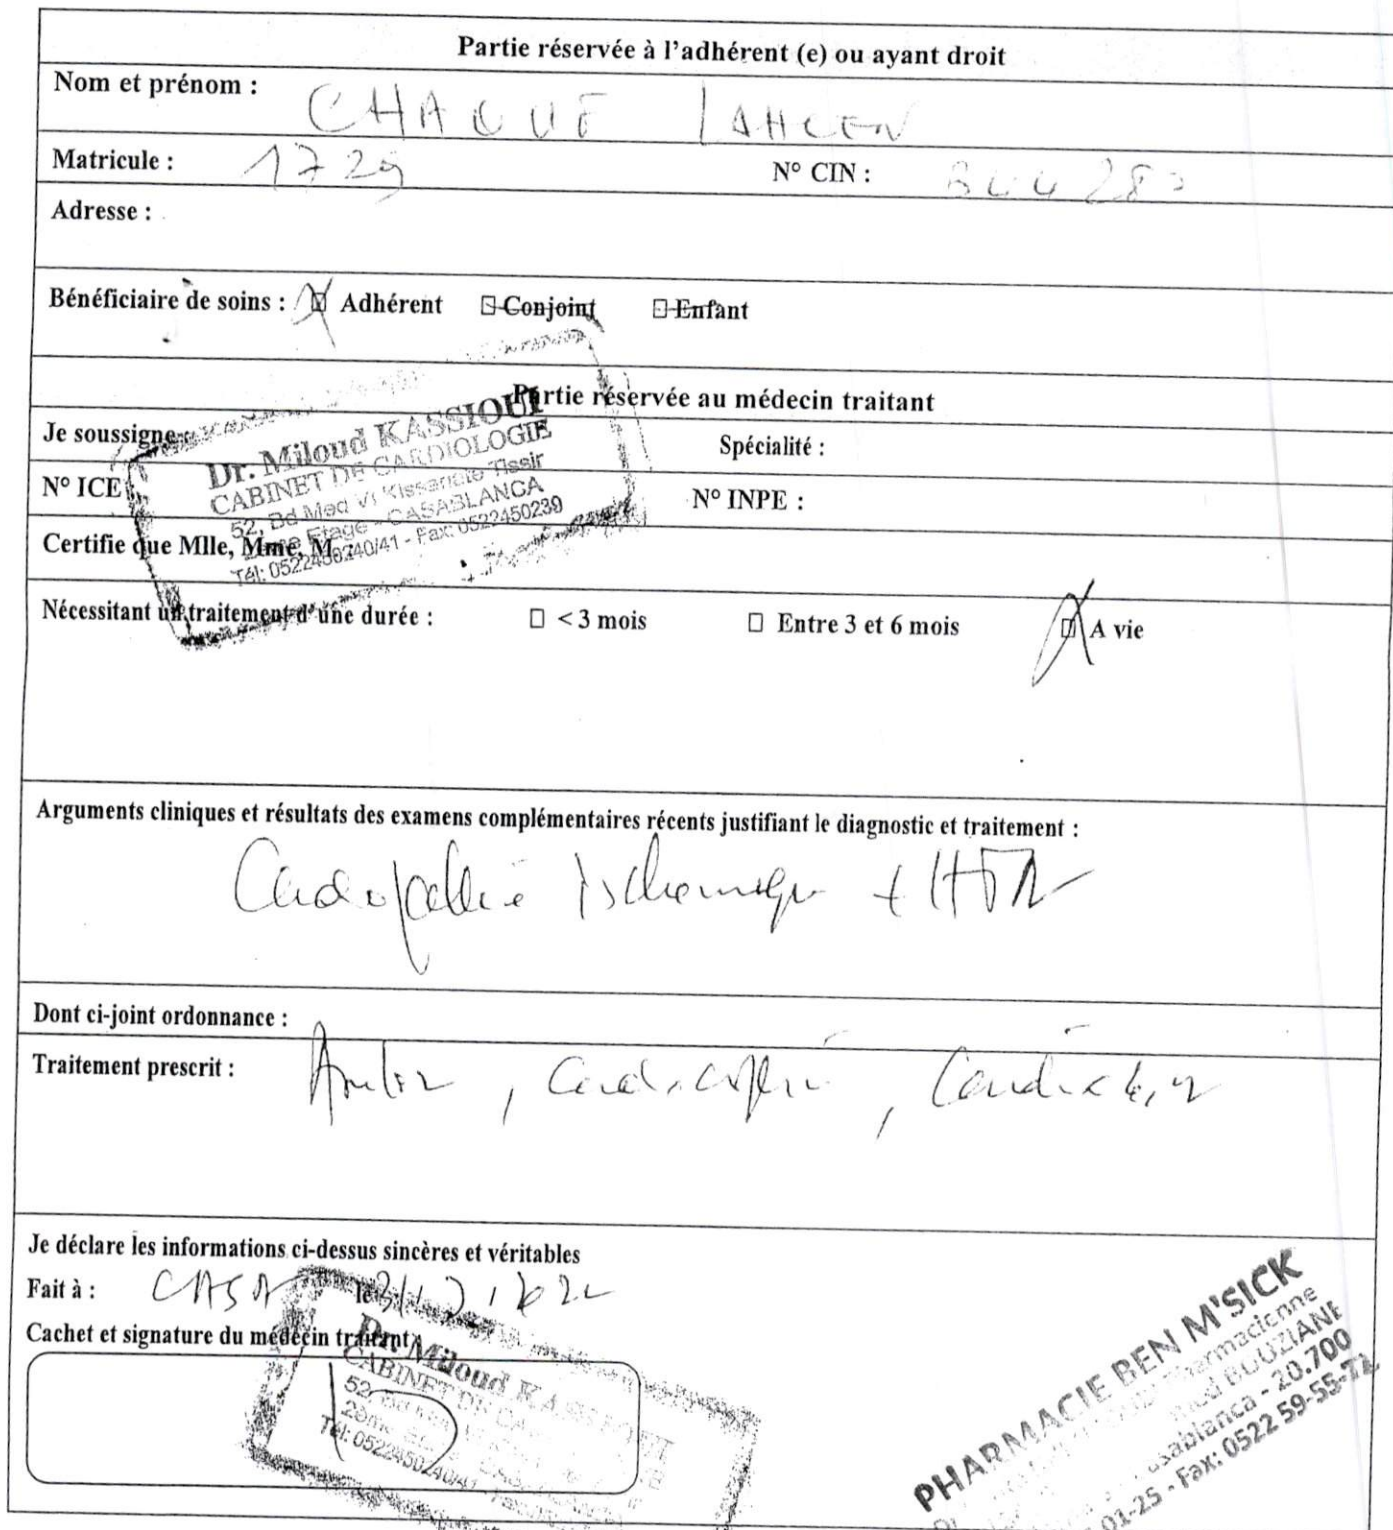 Partie réservée à l'adhérent (e) ou ayant droit
Nom et prénom : CHAOUF LAHCEN
Matricule : 1729 N° CIN :
Adresse :
Bénéficiaire de soins : Adhérent Conjoint Enfant
Partie réservée au médecin traitant
Je soussigné Spécialité :
Dr. Miloud KASSIOUI
CABINET DE CARDIOLOGIE
52, Bd Med VI Kissariate Tissir
Etage - CASABLANCA
Tél: 0522450240/41 - Fax: 0522450239
N° ICE N° INPE :
Certifie que Mlle, Mme, M :
Nécessitant un traitement d'une durée : < 3 mois Entre 3 et 6 mois A vie
Arguments cliniques et résultats des examens complémentaires récents justifiant le diagnostic et traitement :
Cardiopathie ischemique + HTA
Dont ci-joint ordonnance :
Traitement prescrit : Amlor, Cardioaspirine,
Je déclare les informations ci-dessus sincères et véritables
Fait à : CASA le
Cachet et signature du médecin traitant
Dr. Miloud KASSIOUI
CABINET DE
52
2ème
Tél: 0522450240/41
PHARMACIE BEN M'SICK
Pharmacienne
BOUZIANE
Casablanca - 20.700
01-25 - Fax: 0522 59-55-72